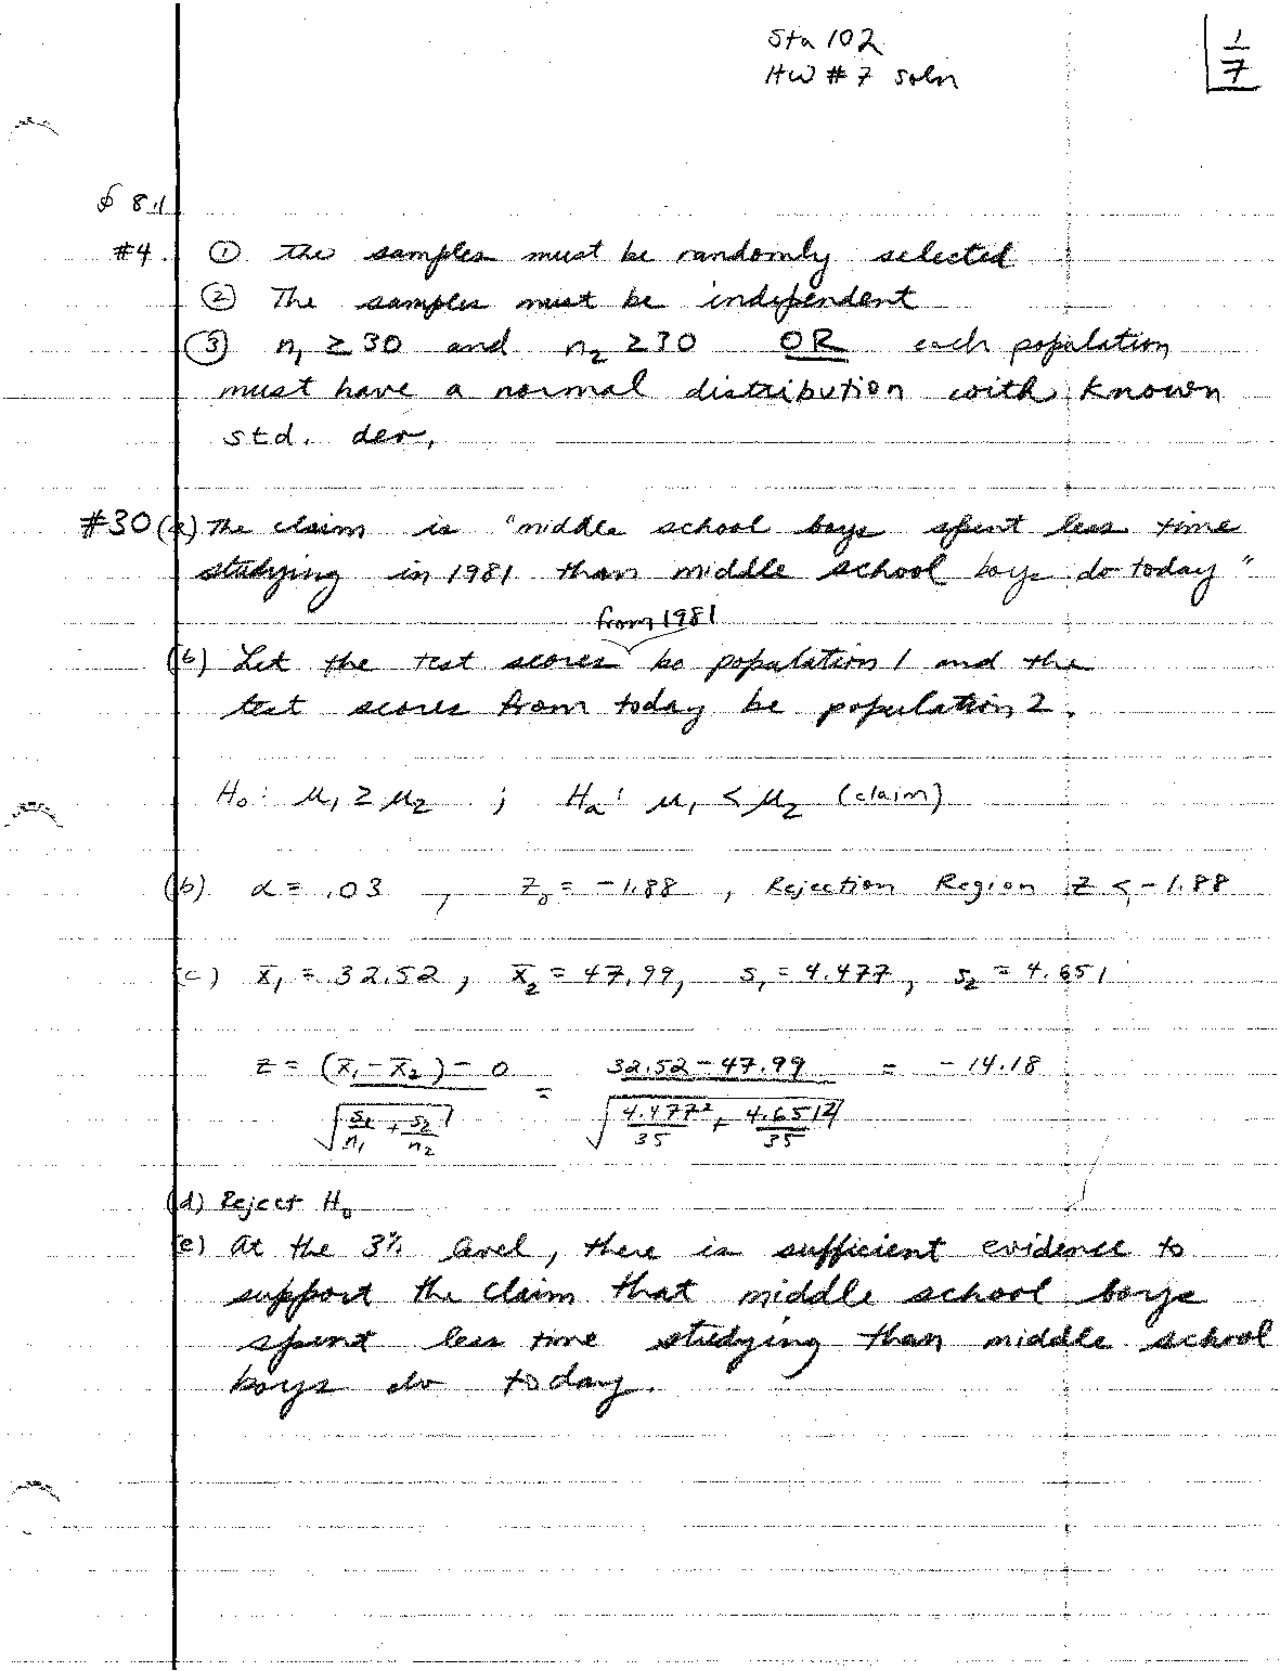 Sta 102
HW #7 soln
1/7
§ 8.1
#4. ① The samples must be randomly selected
② The samples must be independent
③ n₁ ≥ 30 and n₂ ≥ 30 OR each population
must have a normal distribution with known
std. dev.
#30 (a) The claim is "middle school boys spent less time
studying in 1981 than middle school boys do today"
from 1981
(b) Let the test scores be population 1 and the
test scores from today be population 2.
H₀: μ₁ ≥ μ₂ ; Hₐ: μ₁ < μ₂ (claim)
(b). α = .03 , z₀ = -1.88 , Rejection Region z < -1.88
(c) x̄₁ = 32.52, x̄₂ = 47.99, s₁ = 4.477, s₂ = 4.651
z = ((x̄₁ - x̄₂) - 0) / √(s₁/n₁ + s₂/n₂) = (32.52 - 47.99) / √(4.477²/35 + 4.651²/35) = -14.18
(d) Reject H₀
(e) At the 3% level, there is sufficient evidence to
support the claim that middle school boys
spent less time studying than middle school
boys do today.